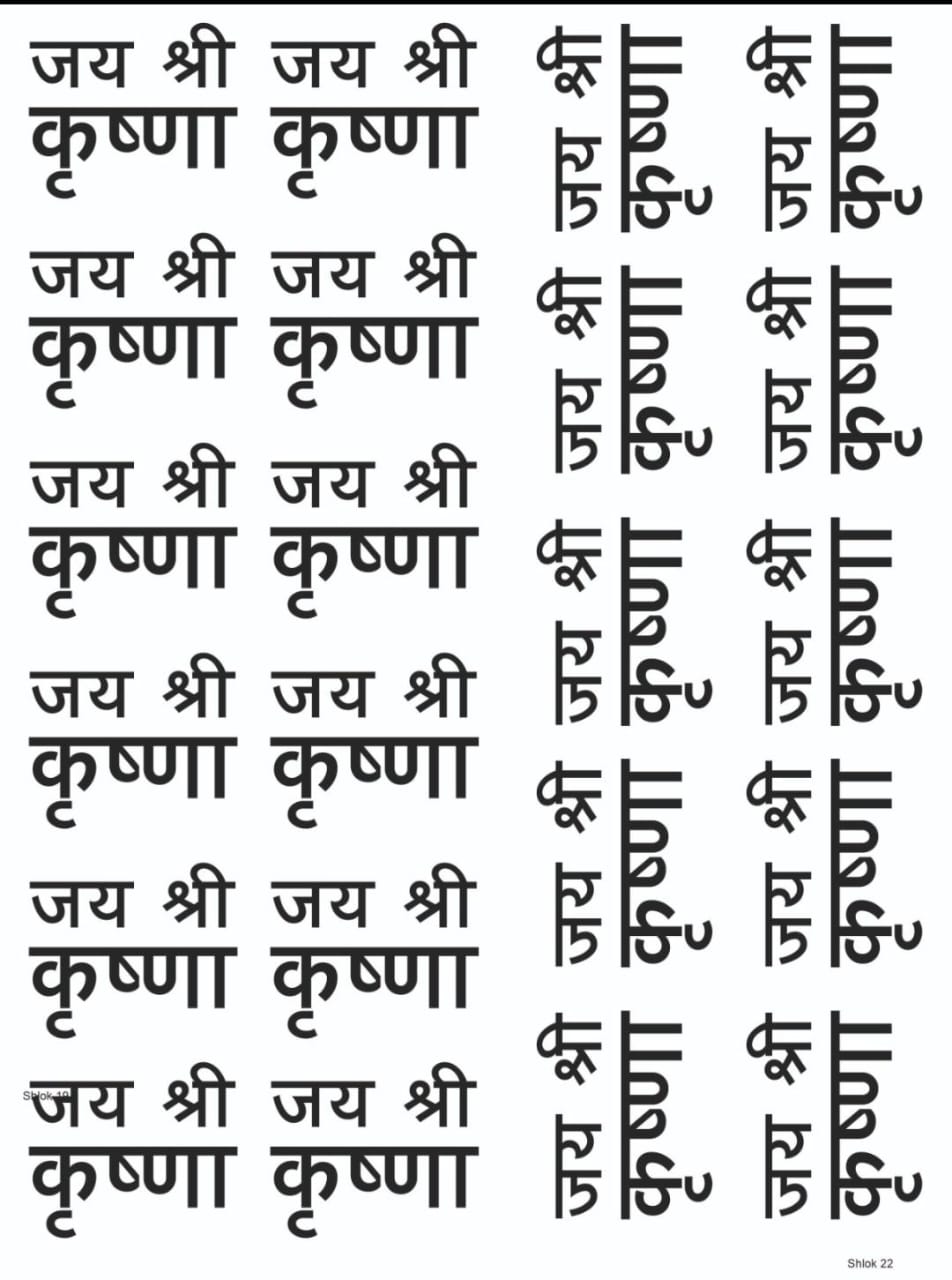 जय श्री
कृष्णा
जय श्री
कृष्णा
जय श्री
कृष्णा
जय श्री
कृष्णा
जय श्री
कृष्णा
जय श्री
कृष्णा
जय श्री
कृष्णा
जय श्री
कृष्णा
जय श्री
कृष्णा
जय श्री
कृष्णा
Shlok 19
जय श्री
कृष्णा
जय श्री
कृष्णा
जय श्री
कृष्णा
जय श्री
कृष्णा
जय श्री
कृष्णा
जय श्री
कृष्णा
जय श्री
कृष्णा
जय श्री
कृष्णा
जय श्री
कृष्णा
जय श्री
कृष्णा
जय श्री
कृष्णा
जय श्री
कृष्णा
Shlok 22